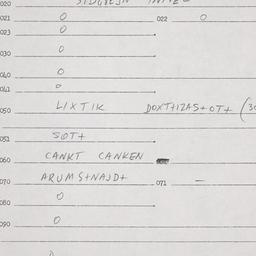 020
021 0 022 0
023 0
030 0
040 0
041 0
050 LIXTIK DOXTHZAS+OT+ (30
051 SOT+
060 CANKT CANKEN
070 ARUMS+NAJD+ 071 —
080 0
090 0